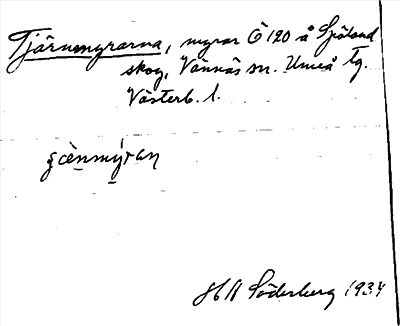 Tjärnmyrarna, myrar Ö 120 å Spöland
skog, Vännäs sn. Umeå tg.
Västerb. l.
H A Söderberg 1934